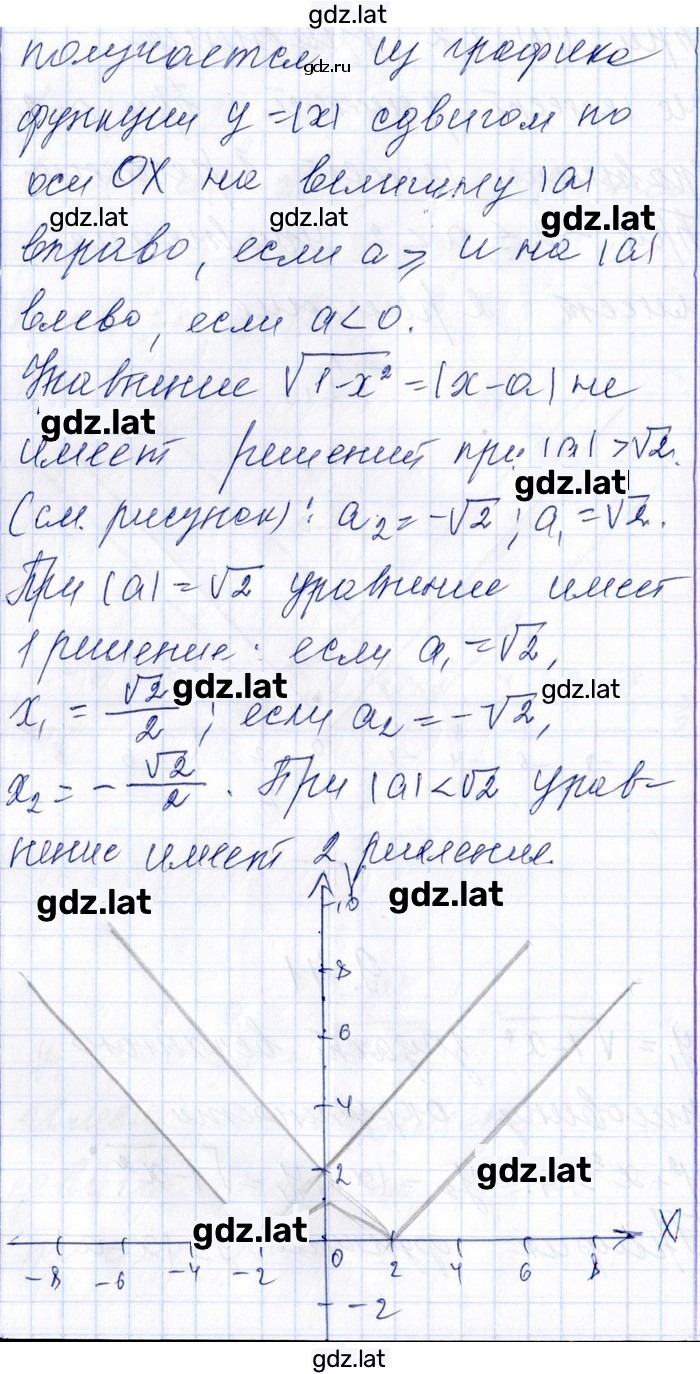 gdz.lat
получается из графика
gdz.ru
функции y=|x| сдвигом по
оси OX на величину |a|
gdz.lat gdz.lat gdz.lat
вправо, если a ⩾ и на |a|
влево, если a<0.
Уравнение √(1-x²) = |x-a| не
gdz.lat
имеет решений при |a|>√2.
gdz.lat
(см. рисунок): a₂=-√2; a₁=√2.
При |a|=√2 уравнение имеет
1 решение: если a₁=√2,
gdz.lat gdz.lat
x₁ = √2/2; если a₂=-√2,
x₂=-√2/2. При |a|<√2 урав-
нение имеет 2 решения.
gdz.lat gdz.lat
Y
10
8
6
4
2
gdz.lat
gdz.lat
X
-8 -6 -4 -2 0 2 4 6 8
-2
gdz.lat